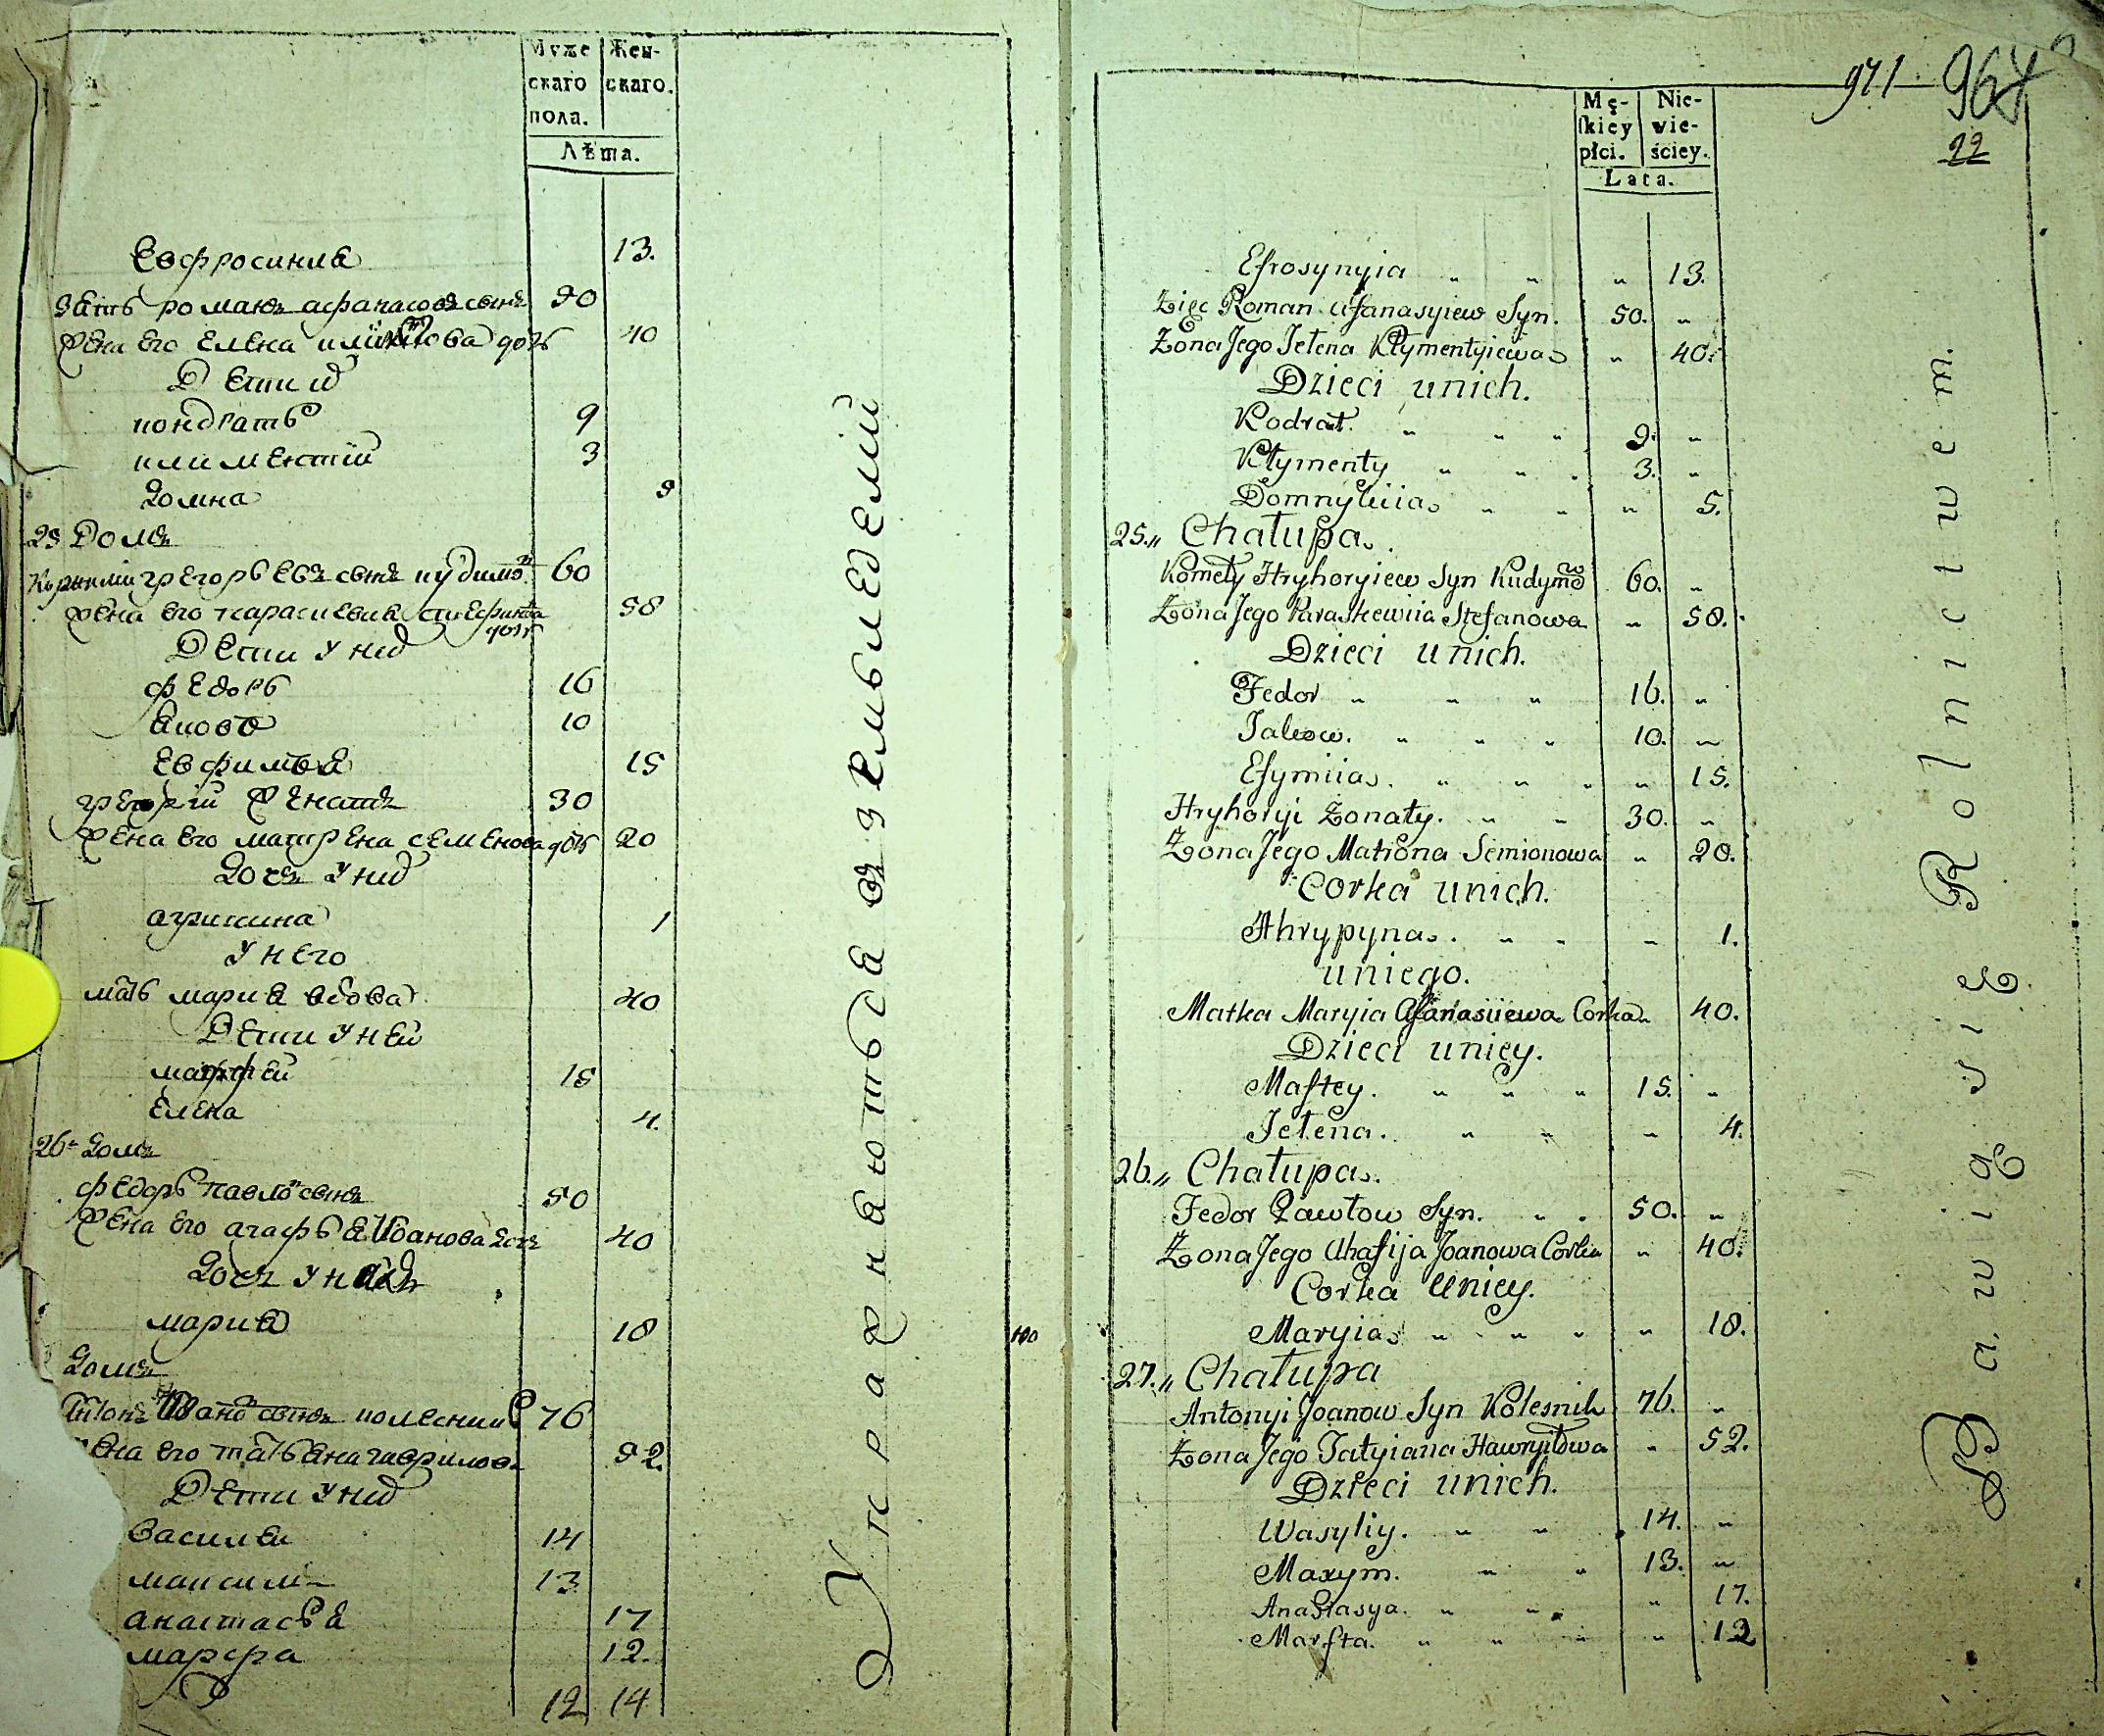 Муже
скаго
пола.
Жен-
скаго.
Лѣта.
Евфросиния 13.
Зять романъ афанасовъ сынъ 50
Жена его Елена климтова дочь 40
Дети их
кондратъ 9
климентий 3
домна 5
25 Домъ
Корнилий григорьевъ сынъ кудимо 60
Жена его параскевия стефанова дочь 58
Дети у них
Федоръ 16
Яковъ 10
Евфимья 15
григорий Женатъ 30
Жена его матрена семенова дочь 20
дочь у них
агрипина 1
у него
мать мария вдова 40
Дети у неи
матфеи 15
Елена 4.
26 домъ
Федоръ павло сынъ 50
Жена его агафья Иванова дочь 40
дочь у них
мария 18
домъ
Антонъ Ивано сынъ колесник 76
ена его татьяна гаврилов. 52.
Дети у них
василеи 14
максимъ 13
анастасья 17
марфа 12.
12 14
Упражняютьса въ земьледелии
100
971 964
22
Mę-
skiey
płci.
Nie-
wie-
ściey.
Lata.
Efrosynyia " " " 13.
Zięc Roman Afanasyiew Syn. 50. "
Zona Jego Jełena Kłymentyiewa " 40.
Dzieci unich.
Kodrat. " " " 9. "
Kłymenty " " . 3. "
Domnykiia " " " 5.
25. „ Chałupa.
Kornełÿ Hryhoryiew Syn Kudymów 60. "
Zona Jego Paraskewiia Stefanowa " 58.
Dzieci unich.
Fedor " " " 16. "
Jakow. " " " 10. "
Efymiia. " " " " 15.
Hryhoryi Zonaty. " " 30. "
Zona Jego Matrona Semionowa " 20.
Corka unich.
Ahrypyna. " " " 1.
uniego.
Matka Maryia Afanasiiewa Corka " 40.
Dzieci uniey.
Maftey. " " " 15. "
Jełena. " " " 4.
26. „ Chałupa.
Fedor Pawłow Syn. " . 50. "
Zona Jego Ahafija Joanowa Corka " 40.
Corka Uniey.
Maryia " " " " 18.
27. „ Chałupa
Antonyi Joanow Syn Kolesnik 76. "
Zona Jego Tatyiana Hawryłowa " 52.
Dzieci unich.
Wasyliy. " " 14. "
Maxym. " " 13. "
Anastasya. " " " 17.
Marfta. " " " " 12
Bawią się Rolnictwem.